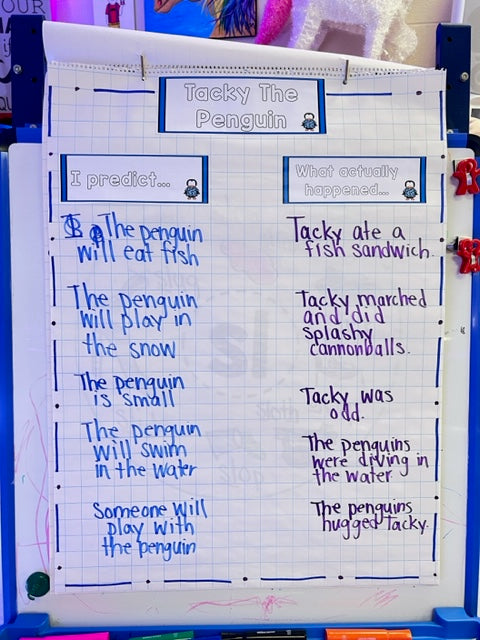 OUR
Tacky The
Penguin
I predict...
The penguin
will eat fish
The penguin
will play in
the snow
The penguin
is small
The penguin
will swim
in the water
Someone will
play with
the penguin
What actually
happened...
Tacky ate a
fish sandwich.
Tacky marched
and did
splashy
cannonballs.
Tacky was
odd.
The penguins
were diving in
the water
The penguins
hugged Tacky.